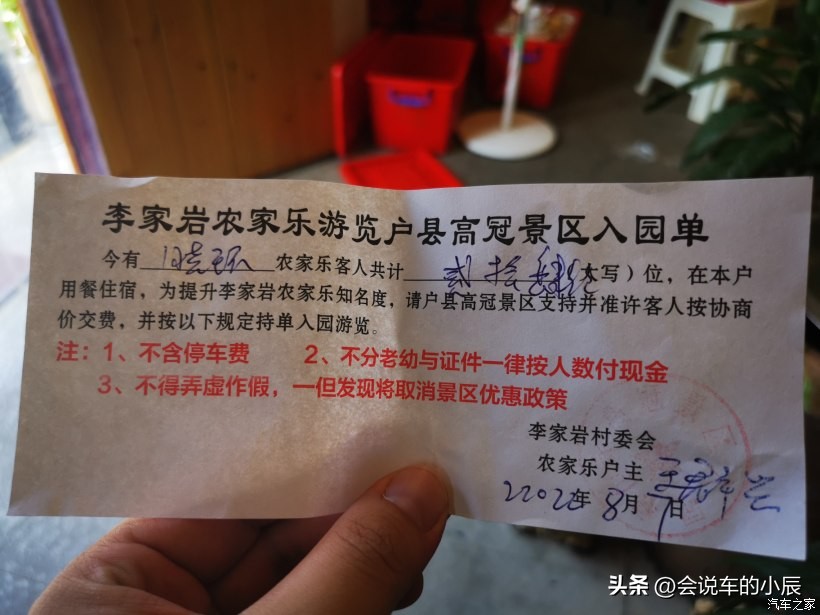 李家岩农家乐游览户县高冠景区入园单
今有 农家乐客人共计 贰拾 大写）位，在本户
用餐住宿，为提升李家岩农家乐知名度，请户县高冠景区支持并准许客人按协商
价交费，并按以下规定持单入园游览。
注：1、不含停车费 2、不分老幼与证件一律按人数付现金
3、不得弄虚作假，一但发现将取消景区优惠政策
李家岩村委会
农家乐户主
年 8月 日
头条 @会说车的小辰
汽车之家